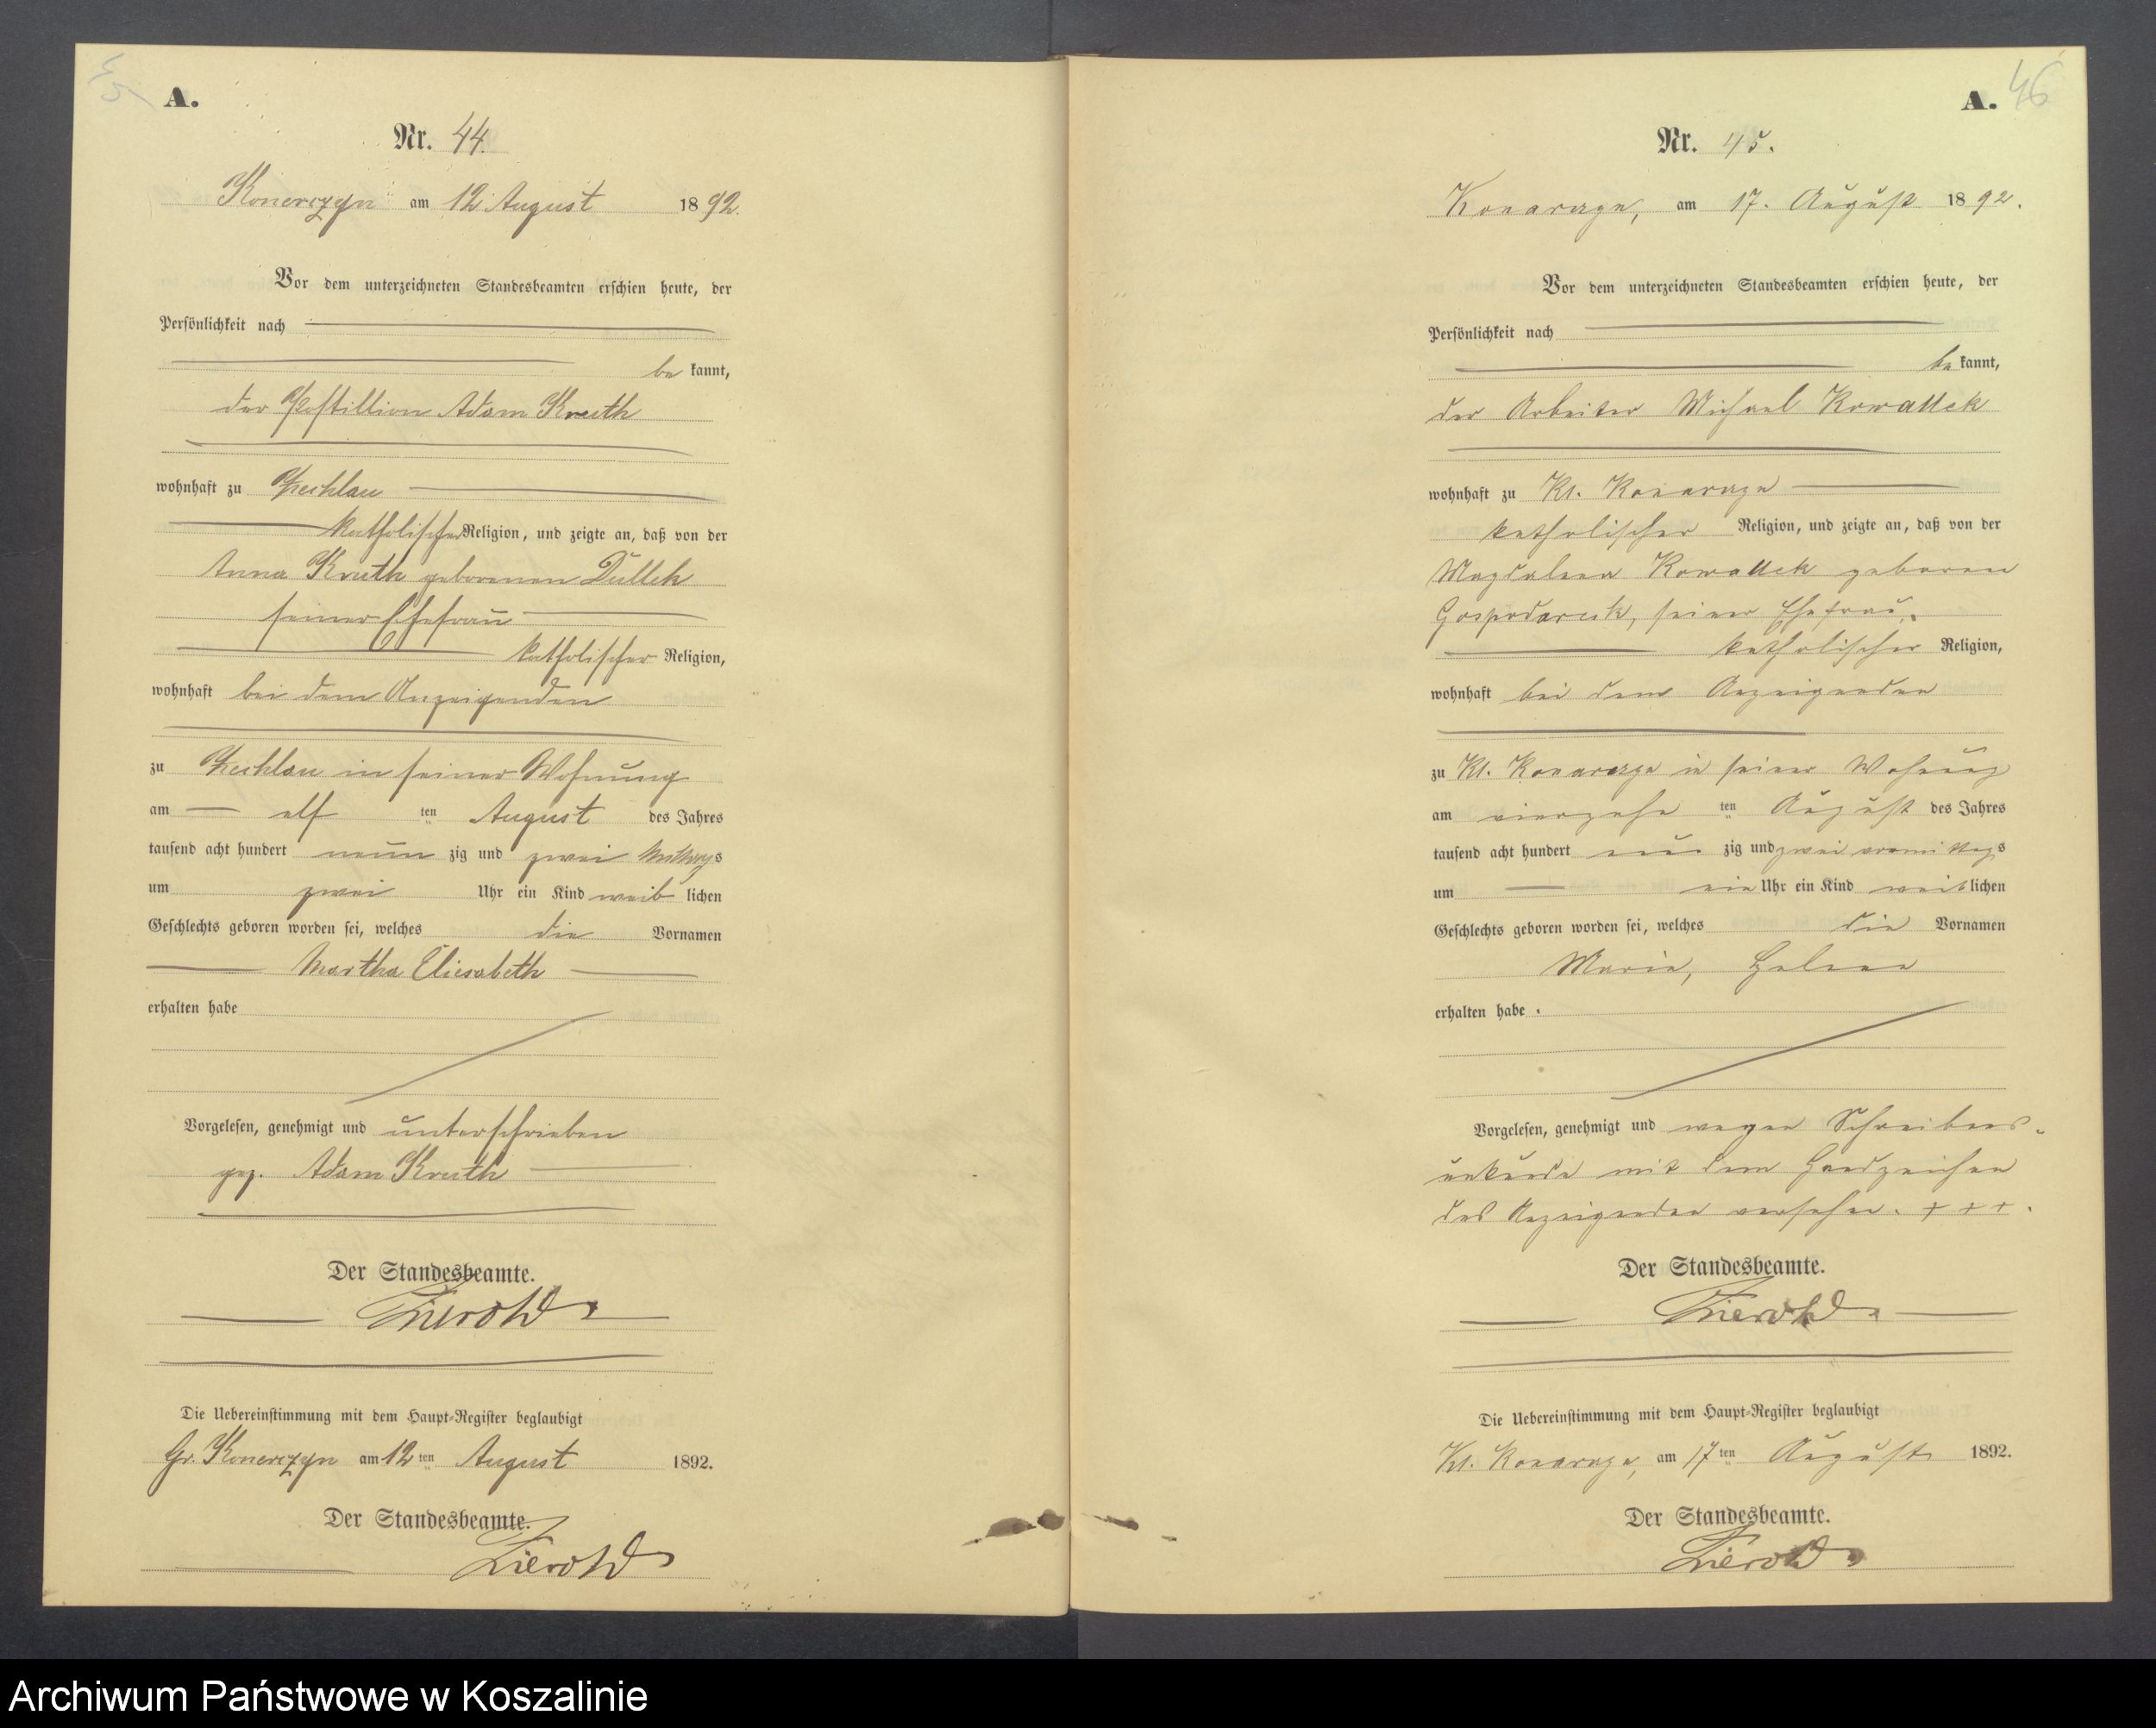 45
A.
Nr. 44.
Konerczyn am 12 August 1892.
Vor dem unterzeichneten Standesbeamten erschien heute, der
Persönlichkeit nach
be kannt,
der Postillion Adam Knuth
wohnhaft zu Prechlau
katholischer Religion, und zeigte an, daß von der
Anna Knuth geborenen Dullek
seiner Ehefrau
katholischer Religion,
wohnhaft bei dem Anzeigenden
zu Prechlau in seiner Wohnung
am elf ten August des Jahres
tausend acht hundert neun zig und zwei Mittags
um zwei Uhr ein Kind weib lichen
Geschlechts geboren worden sei, welches die Vornamen
Martha Eliesabeth
erhalten habe
Vorgelesen, genehmigt und unterschrieben
gez. Adam Knuth
Der Standesbeamte.
Zierold
Die Uebereinstimmung mit dem Haupt-Register beglaubigt
Gr. Konerczyn am 12 ten August 1892.
Der Standesbeamte.
Zierold
46
A.
Nr. 45.
Konarczyn, am 17. August 1892.
Vor dem unterzeichneten Standesbeamten erschien heute, der
Persönlichkeit nach
be kannt,
der Arbeiter Michael Kowallek
wohnhaft zu Kl. Konarczyn
katholischer Religion, und zeigte an, daß von der
Magdalena Kowallek geborene
Gospodarek, seiner Ehefrau,
katholischer Religion,
wohnhaft bei dem Anzeigenden
zu Kl. Konarczyn in seiner Wohnung
am vierzehn ten August des Jahres
tausend acht hundert neun zig und zwei vormittags
um ein Uhr ein Kind weib lichen
Geschlechts geboren worden sei, welches die Vornamen
Maria, Helena
erhalten habe.
Vorgelesen, genehmigt und wegen Schreibens-
unkunde mit dem Handzeichen
des Anzeigenden versehen. + + +.
Der Standesbeamte.
Zierold
Die Uebereinstimmung mit dem Haupt-Register beglaubigt
Kl. Konarczyn, am 17 ten August 1892.
Der Standesbeamte.
Zierold
Archiwum Państwowe w Koszalinie